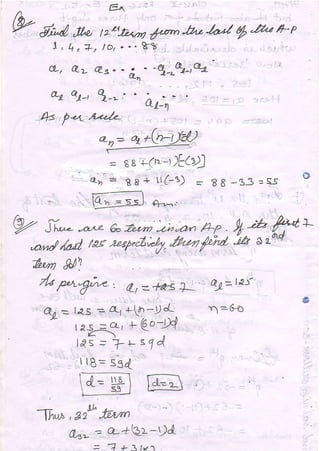 Ex
(8) Find the 12th term from the last of the A.P
1, 4, 7, 10, ... 88
a1 a2 a3 ..... an ... al-2 al-1 al
al al-1 al-2 ..... al-n
As per rule
an = al + (n-1)(-d)
= 88 + (12-1)[-(3)]
an = 88 + 11(-3) = 88 - 33 = 55
an = 55 Ans.
(9) There are 60 term in an A.p. If its first 7
and last 125 respectively, then find its 32nd
term
As per give: a1 = +7 al = 125
al = 125 = a1 + (n-1)d n = 60
125 = a1 + (60-1)d
125 = 7 + 59d
118 = 59d
d = 118/59 d = 2
Thus, 32th term
a32 = a + (32-1)d
= 7 + 31×2